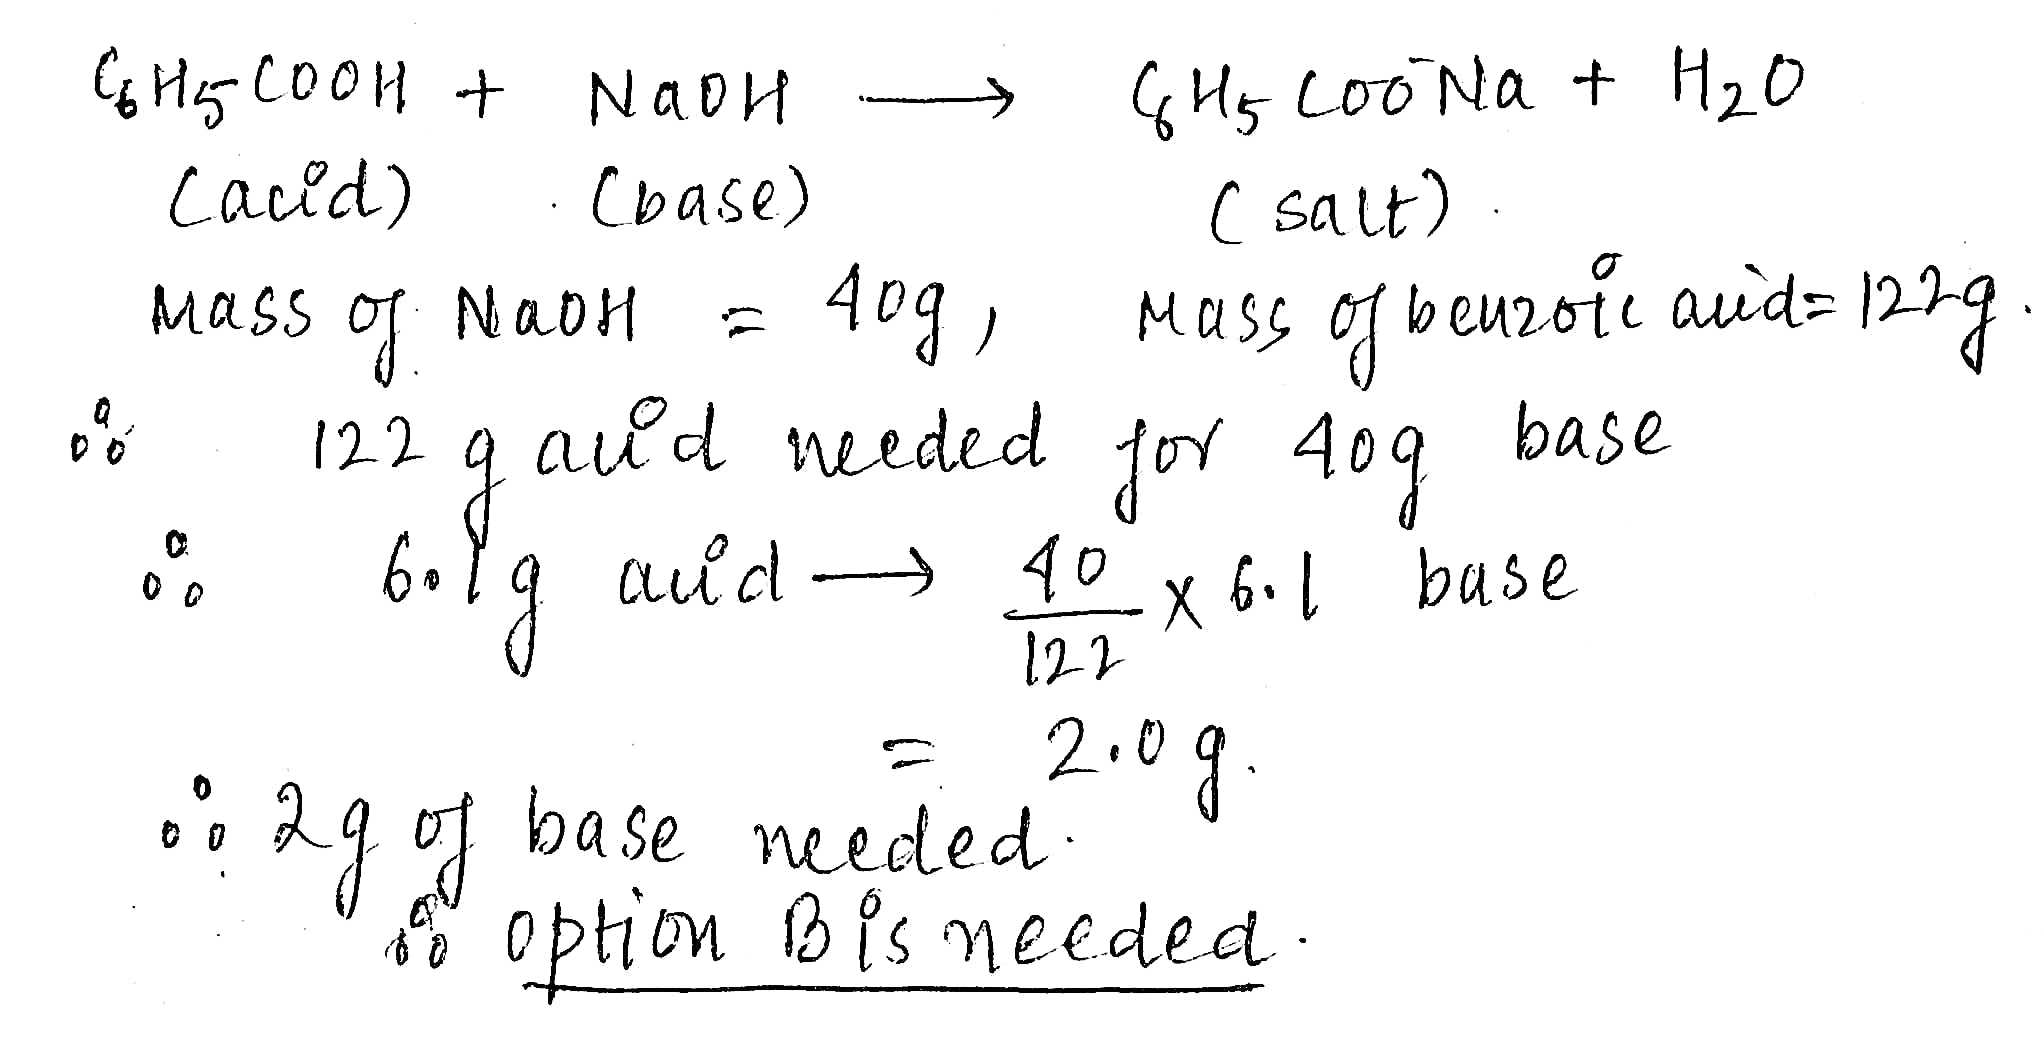 C₆H₅COOH + NaOH ⟶ C₆H₅COO⁻Na + H₂O
(acid) (base) (salt)
Mass of NaOH = 40g, Mass of benzoic acid = 122g.
∴ 122 g acid needed for 40g base
∴ 6.1g acid ⟶ 40/122 × 6.1 base
= 2.0 g.
∴ 2g of base needed.
∴ option B is needed.